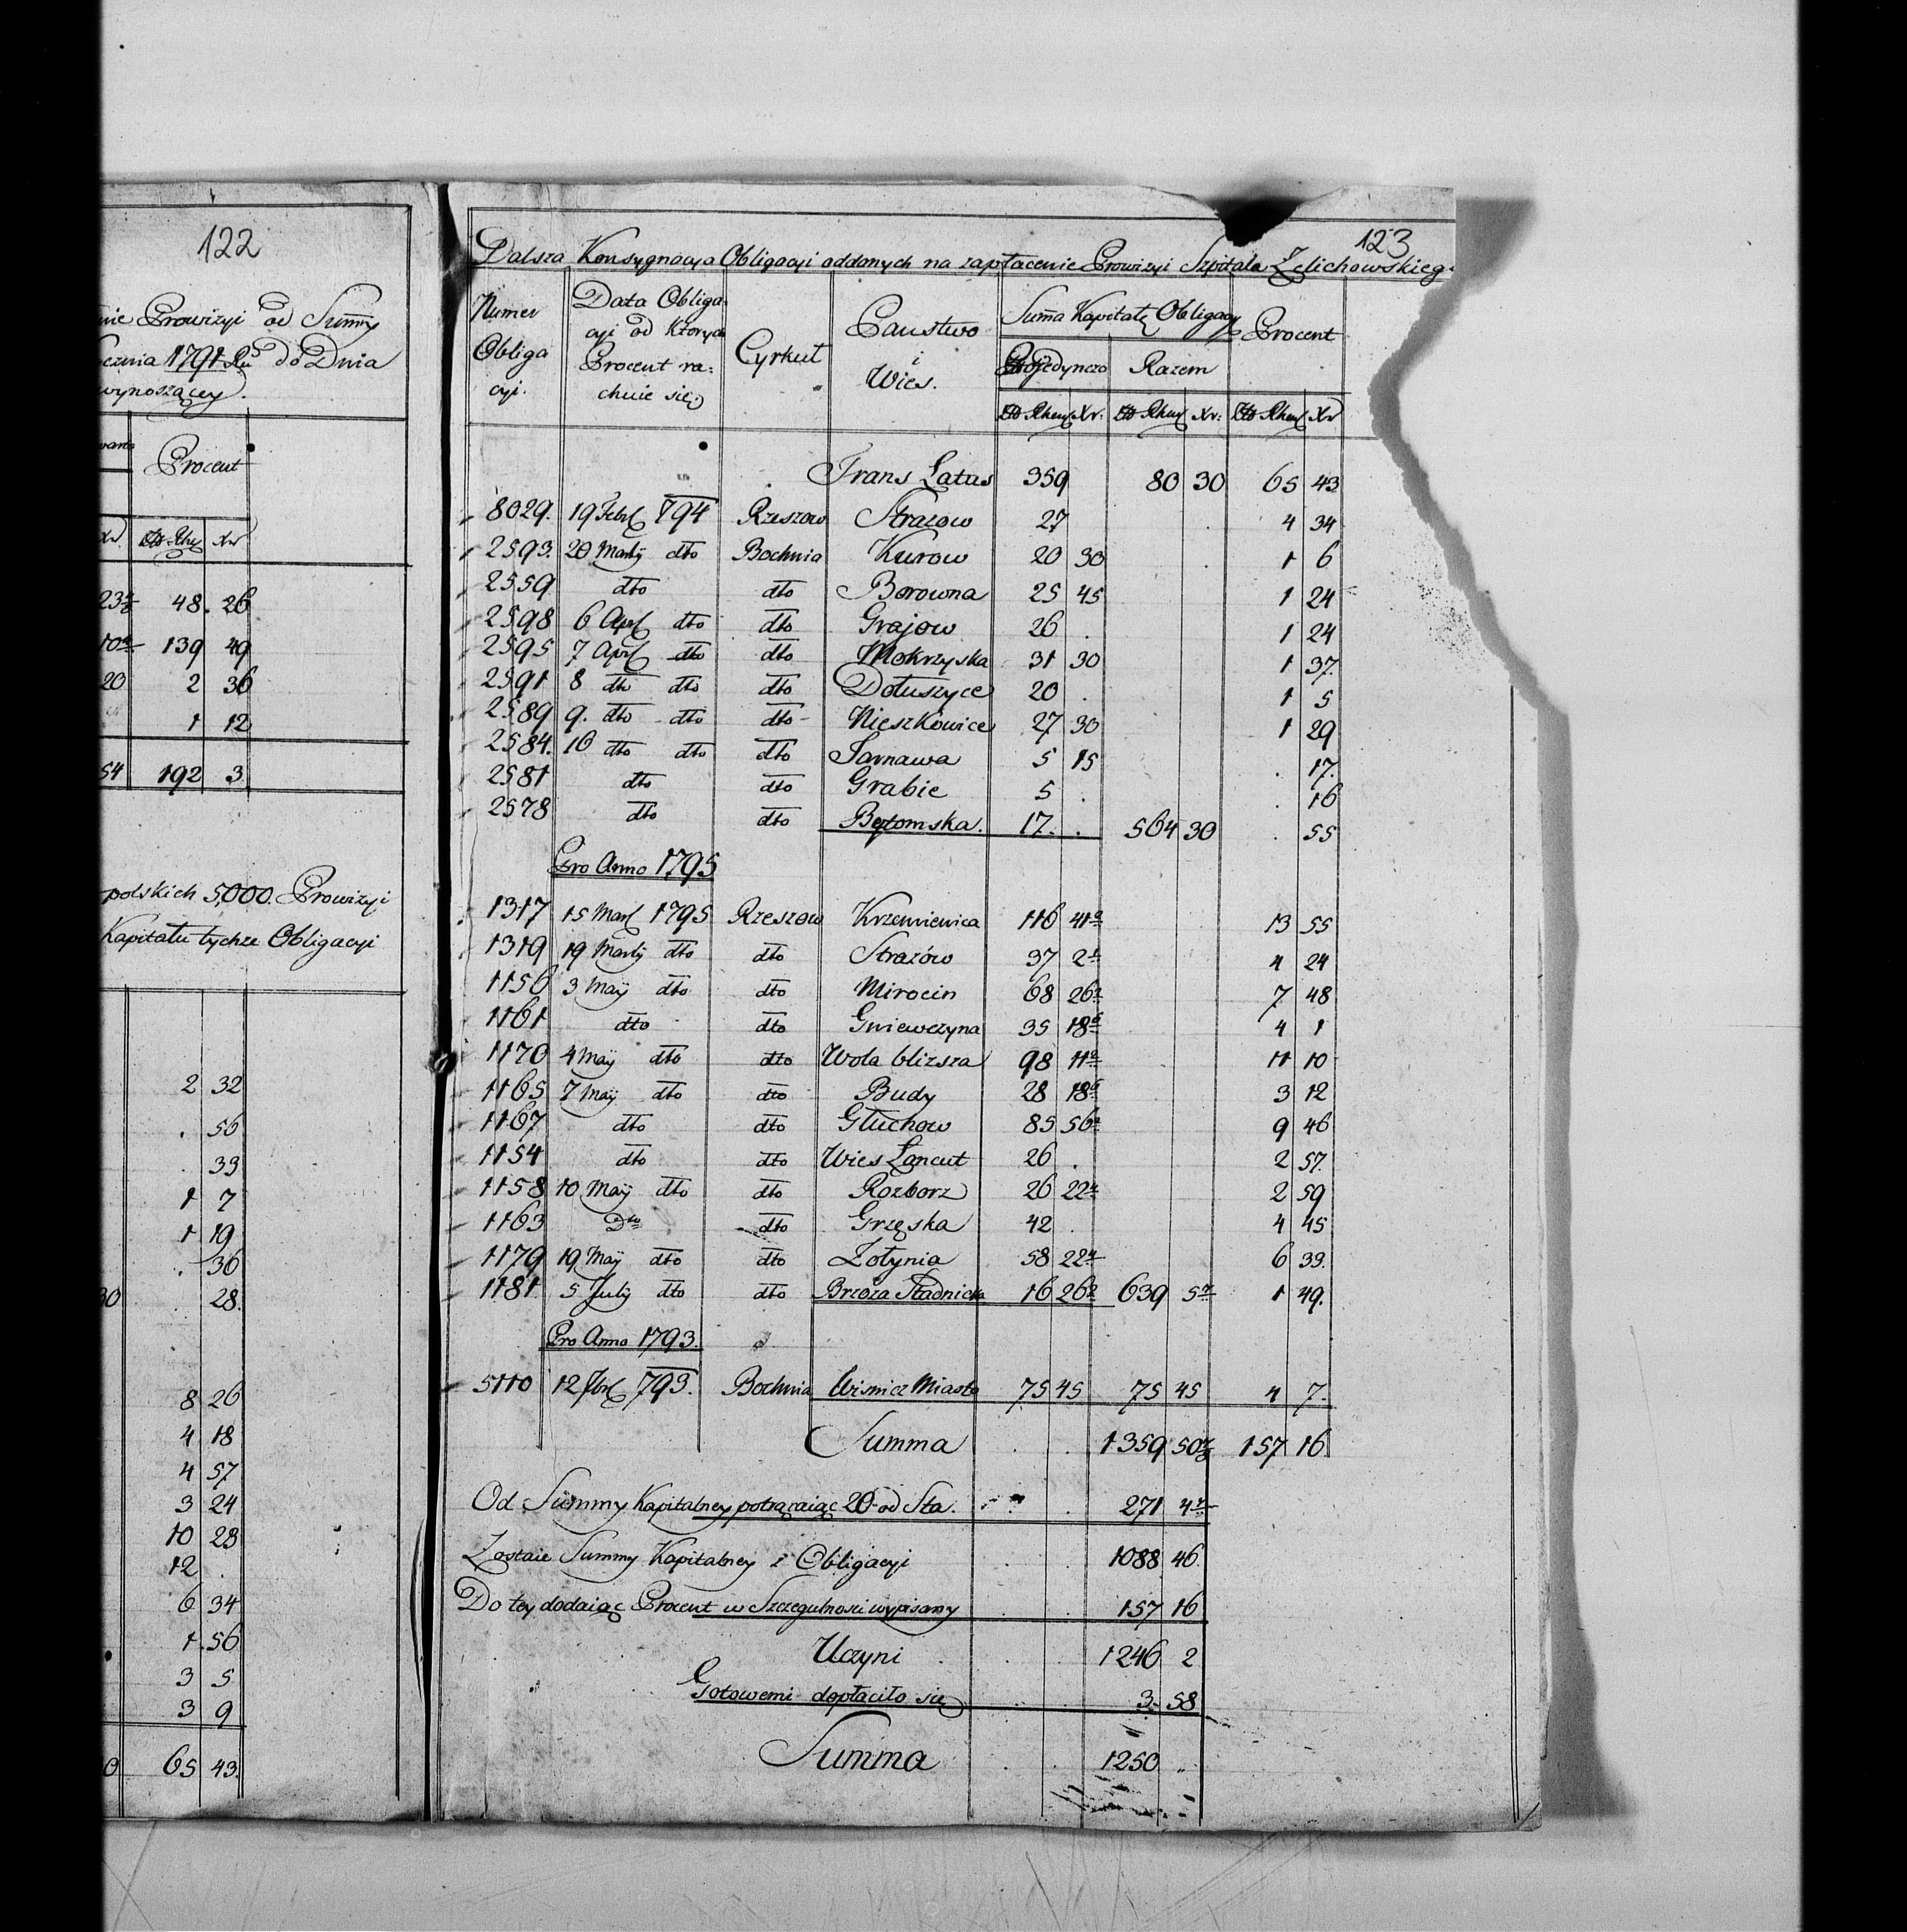 122
Prowizyi od Summy
1791 Ru do Dnia
wynoszącey.
Procent
Xr ZŁ Rhen Xr
48. 26
139 49
20 2 36
1 12
54 192 3
polskich 5,000. Prowizyi
Kapitału tychże Obligacyi
2 32
. 56
. 33
1 7
1 19
. 36
30 . 28.
8 26
4 18
4 57
3 24
10 28
12 .
6 34
1 56
3 5
3 9
0 65 43.
123
Dalsza Konsygnacya Obligacyi oddanych na zapłacenie Prowizyi Szpitala Zelichowskieg
Numer Obligacyi.
Data Obligacyi od Których Procent rachuie się
Cyrkuł
Panstwo i Wies.
Suma Kapitału Obligacyi
Procent
Pojedynczo Razem
Rhen Xr: Rhen Xr: Rhen Xr
Trans Latus 359 80 30 65 43
8029. 19 Febr 794 Rzeszow Strazow 27 4 34
2593. 20 Martij dto Bochnia Kurow 20 30 1 6
2559 dto dto Borowna 25 45 1 24
2598 6 Apr dto dto Grajow 26 . 1 24
2595 7 Apr dto dto Mokrzyska 31 30 1 37.
2591 8 dto dto dto Dołuszyce 20 . 1 5
2589 9. dto dto dto Nieszkowice 27 30 1 29
2584. 16 dto dto dto Tarnawa 5 15 . 17.
2581 dto dto Grabie 5 . . 16
2578 dto dto Bytomska. 17. . 564 30 . 55
Pro Anno 1795
1317 15 Mart 1795 Rzeszow Krzemienica 116 41 13 55
1319 19 Martij dto dto Strazów 37 2 4 24
1156 3 Maij dto dto Mirocin 68 26 7 48
1161 dto dto Gniewczyna 35 18 4 1
1170 4 Maij dto dto Wola blizsza 98 11 11 10
1165 7 Maij dto dto Budy 28 18 3 12
1167 dto dto Głuchow 85 56 9 46
1154 dto dto Wies Łancut 26 . 2 57.
1158 10 Maij dto dto Rozborz 26 22 2 59
1163 Dto dto Grzęska 42 . 4 45
1179 19 Maij dto dto Zołynia 58 22 6 33.
1181 5 July dto dto Brzoza Stadnicka 16 26 639 5 1 49.
Pro Anno 1793.
5110 793. Bochnia Wisnicz Miasto 75 45 75 45 4 7.
Summa . . 1359 50 157 16
Od Summy Kapitalney potrącaiąc 20 od Sta. 271 4
Zostaie Summy Kapitalney z Obligacyi 1088 46.
Do tey dodaiąc Procent w Szczegulnosci wypisany 157 16
Uczyni 1246 2
Gotowemi dopłaciło się 3. 58
Summa 1250 "